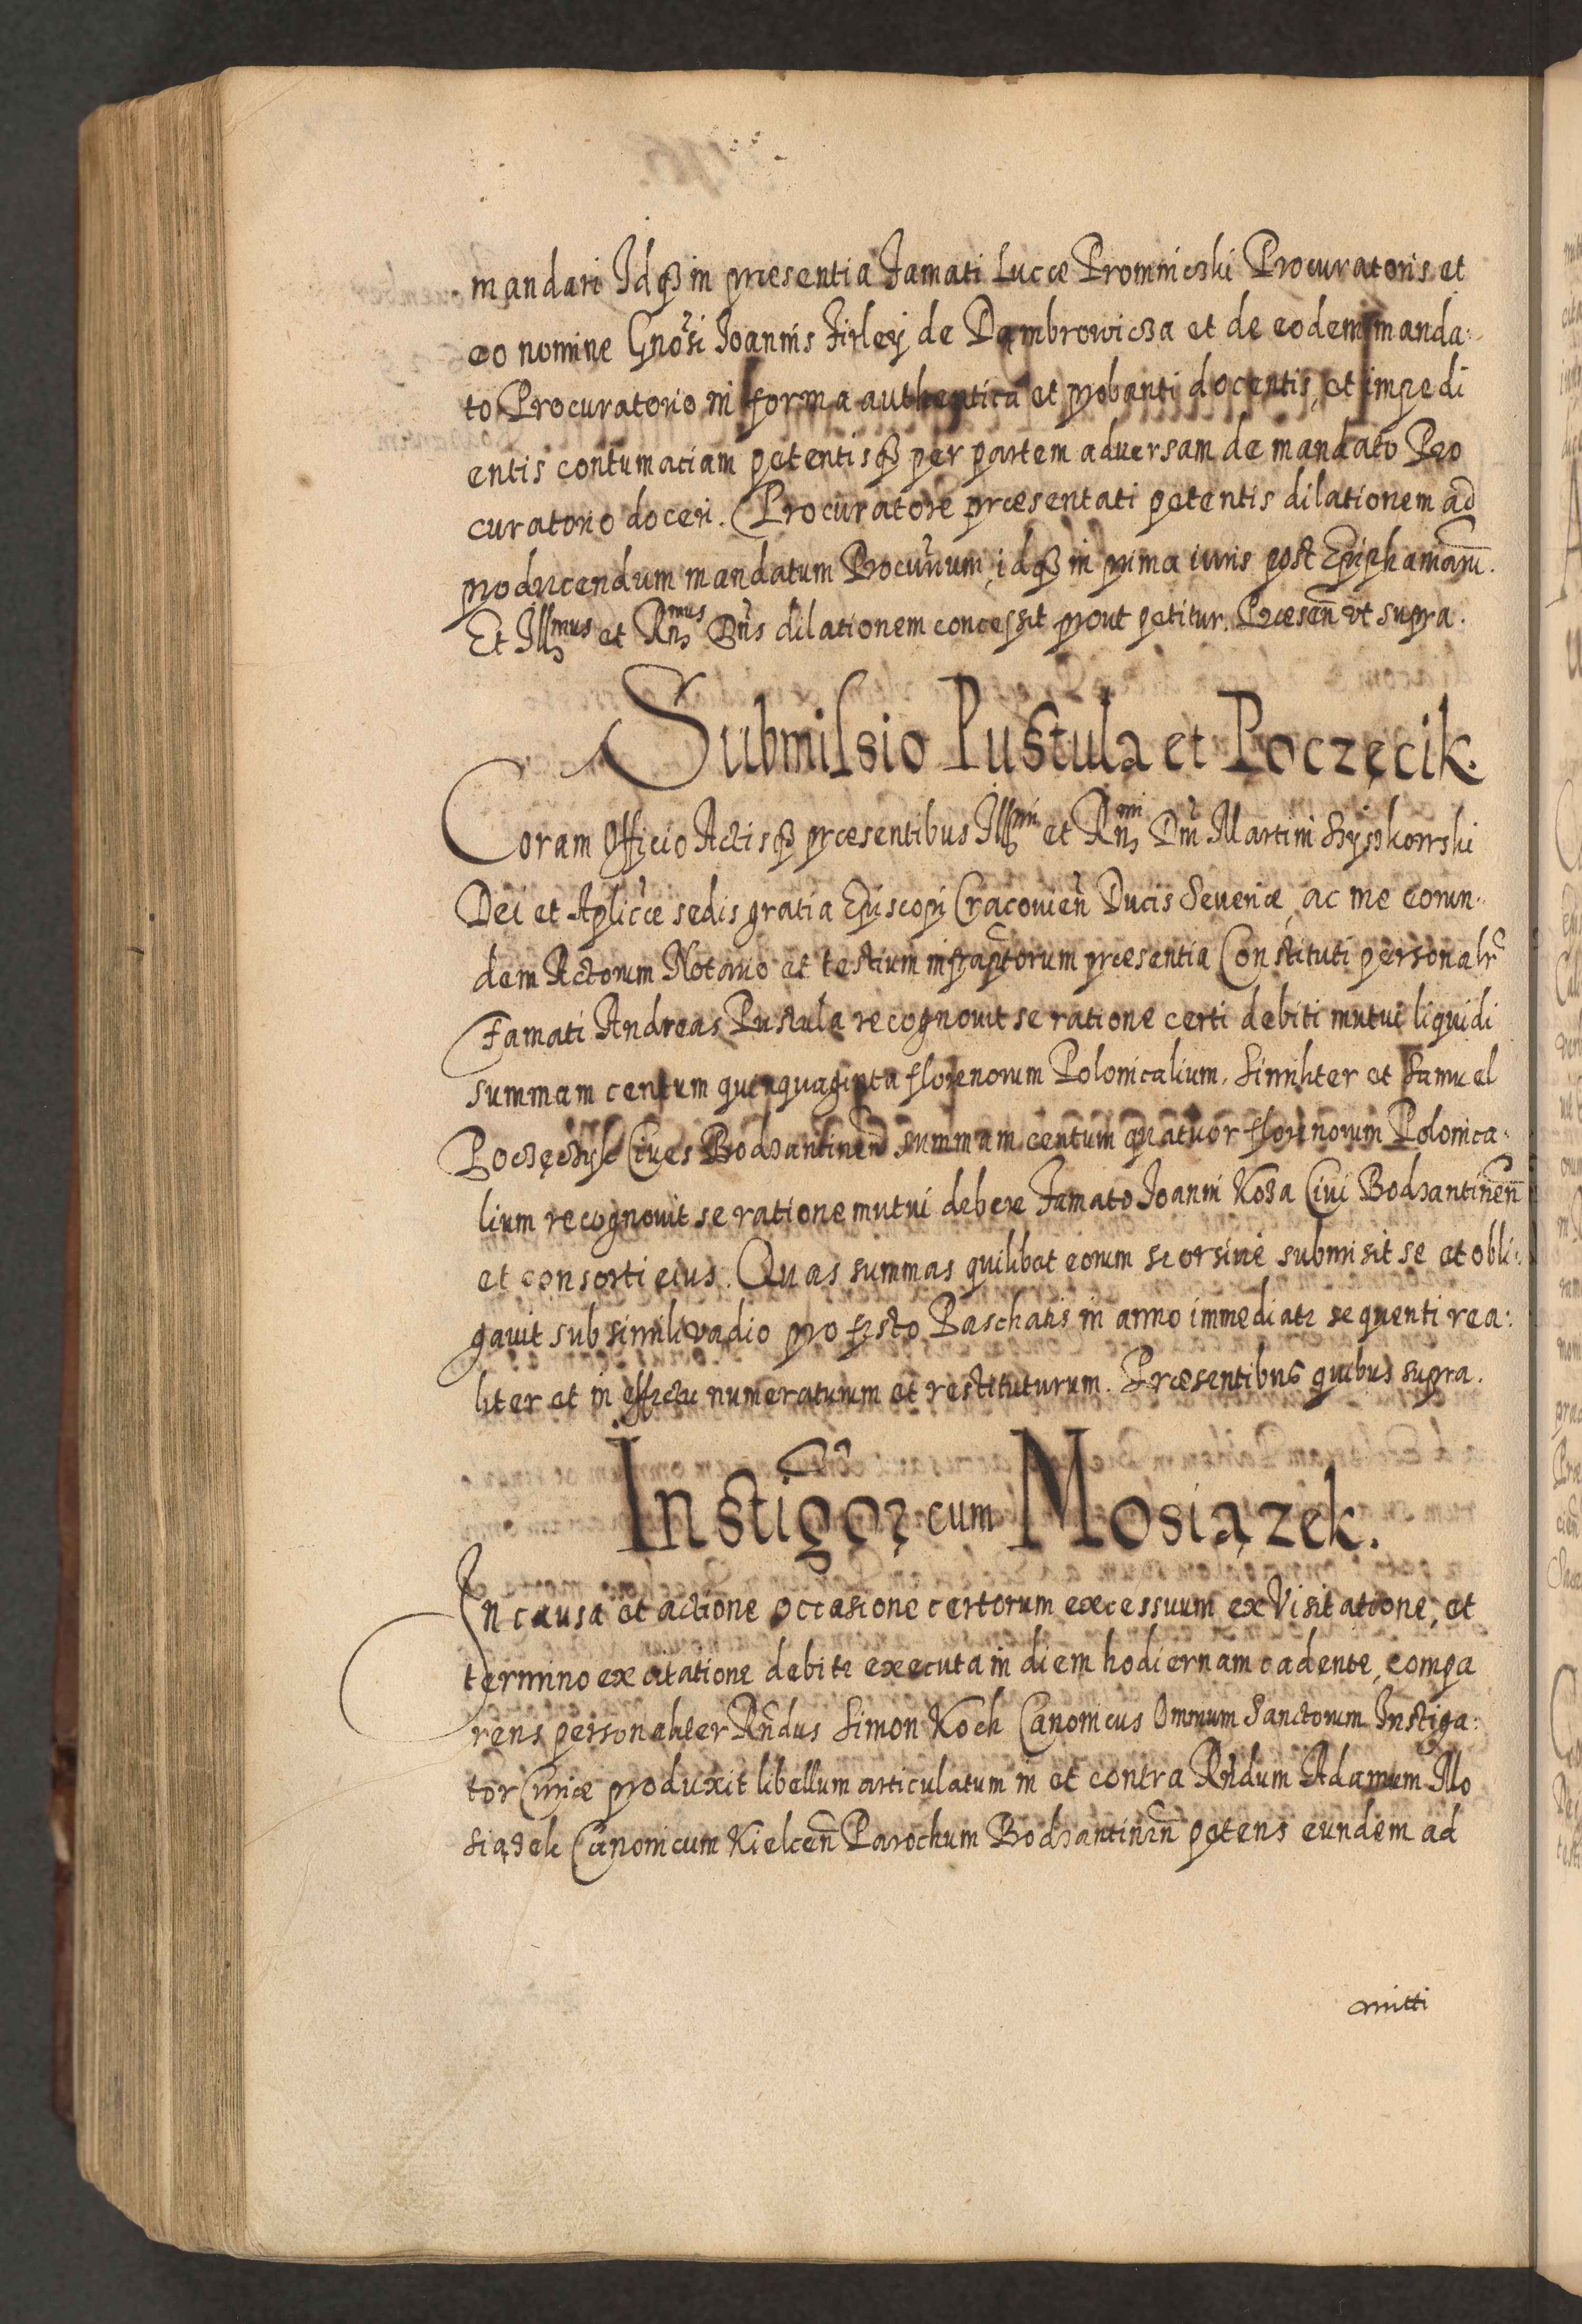 mandari Idqꝫ in præsentia Famati Lucæ Promnicski Procuratoris et
eo nomine Gnosi Ioannis Firley de Dąmbrowicza et de eodem manda:
to Procuratorio in forma authentica et probanti docentis, et impedi
entis contumaciam petentisqꝫ per partem aduersam de mandato Pro
curatorio doceri. Procuratore præsentati petentis dilationem ad
producendum mandatum Procurium, idqꝫ in prima iuris post Epiphaniarū.
Et Illmus et Rnmus Dns dilationem concessit prout petitur. Præsen̄ vt supra.
Submissio Pustula et Poczęcik.
Coram Officio Actisqꝫ præsentibus Illmi et Rnmi Dni Martini Szyszkowski
Dei et Aplicæ sedis gratia Episcopi Cracouien̄ Ducis Seueriæ, ac me eorun-
dem Actorum Notario et testium infraptorum præsentia Constituti personalr
Famati Andreas Pustula recognouit se ratione certi debiti mutui liquidi
summam centum quinquaginta florenorum Polonicalium, Similiter et Samuel
Poczęczyk Ciues Bodzantinen̄ summam centum quatuor florenorum Polonica-
lium recognouit se ratione mutui debere Famato Ioanni Koza Ciui Bodzantinen̄
et consorti eius. Quas summas quilibet eorum seorsiue submisit se et obli-
gauit sub simili vadio pro festo Paschatis in anno immediate sequenti rea:
liter et in effectu numeraturum et restituturum. Præsentibus quibus supra.
Instigor cum Mosiązek.
In causa et actione occasione certorum excessuum ex Visitatione, et
termino ex citatione debite executa in diem hodiernam cadente, compa
rens personaliter Rndus Simon Koch Canonicus Omnium Sanctorum Instiga:
tor Curiæ produxit libellum articulatum in et contra Rndum Adamum Mo
siązek Canonicum Kielcen̄ Parochum Bodzantinen̄ petens eundem ad
mitti